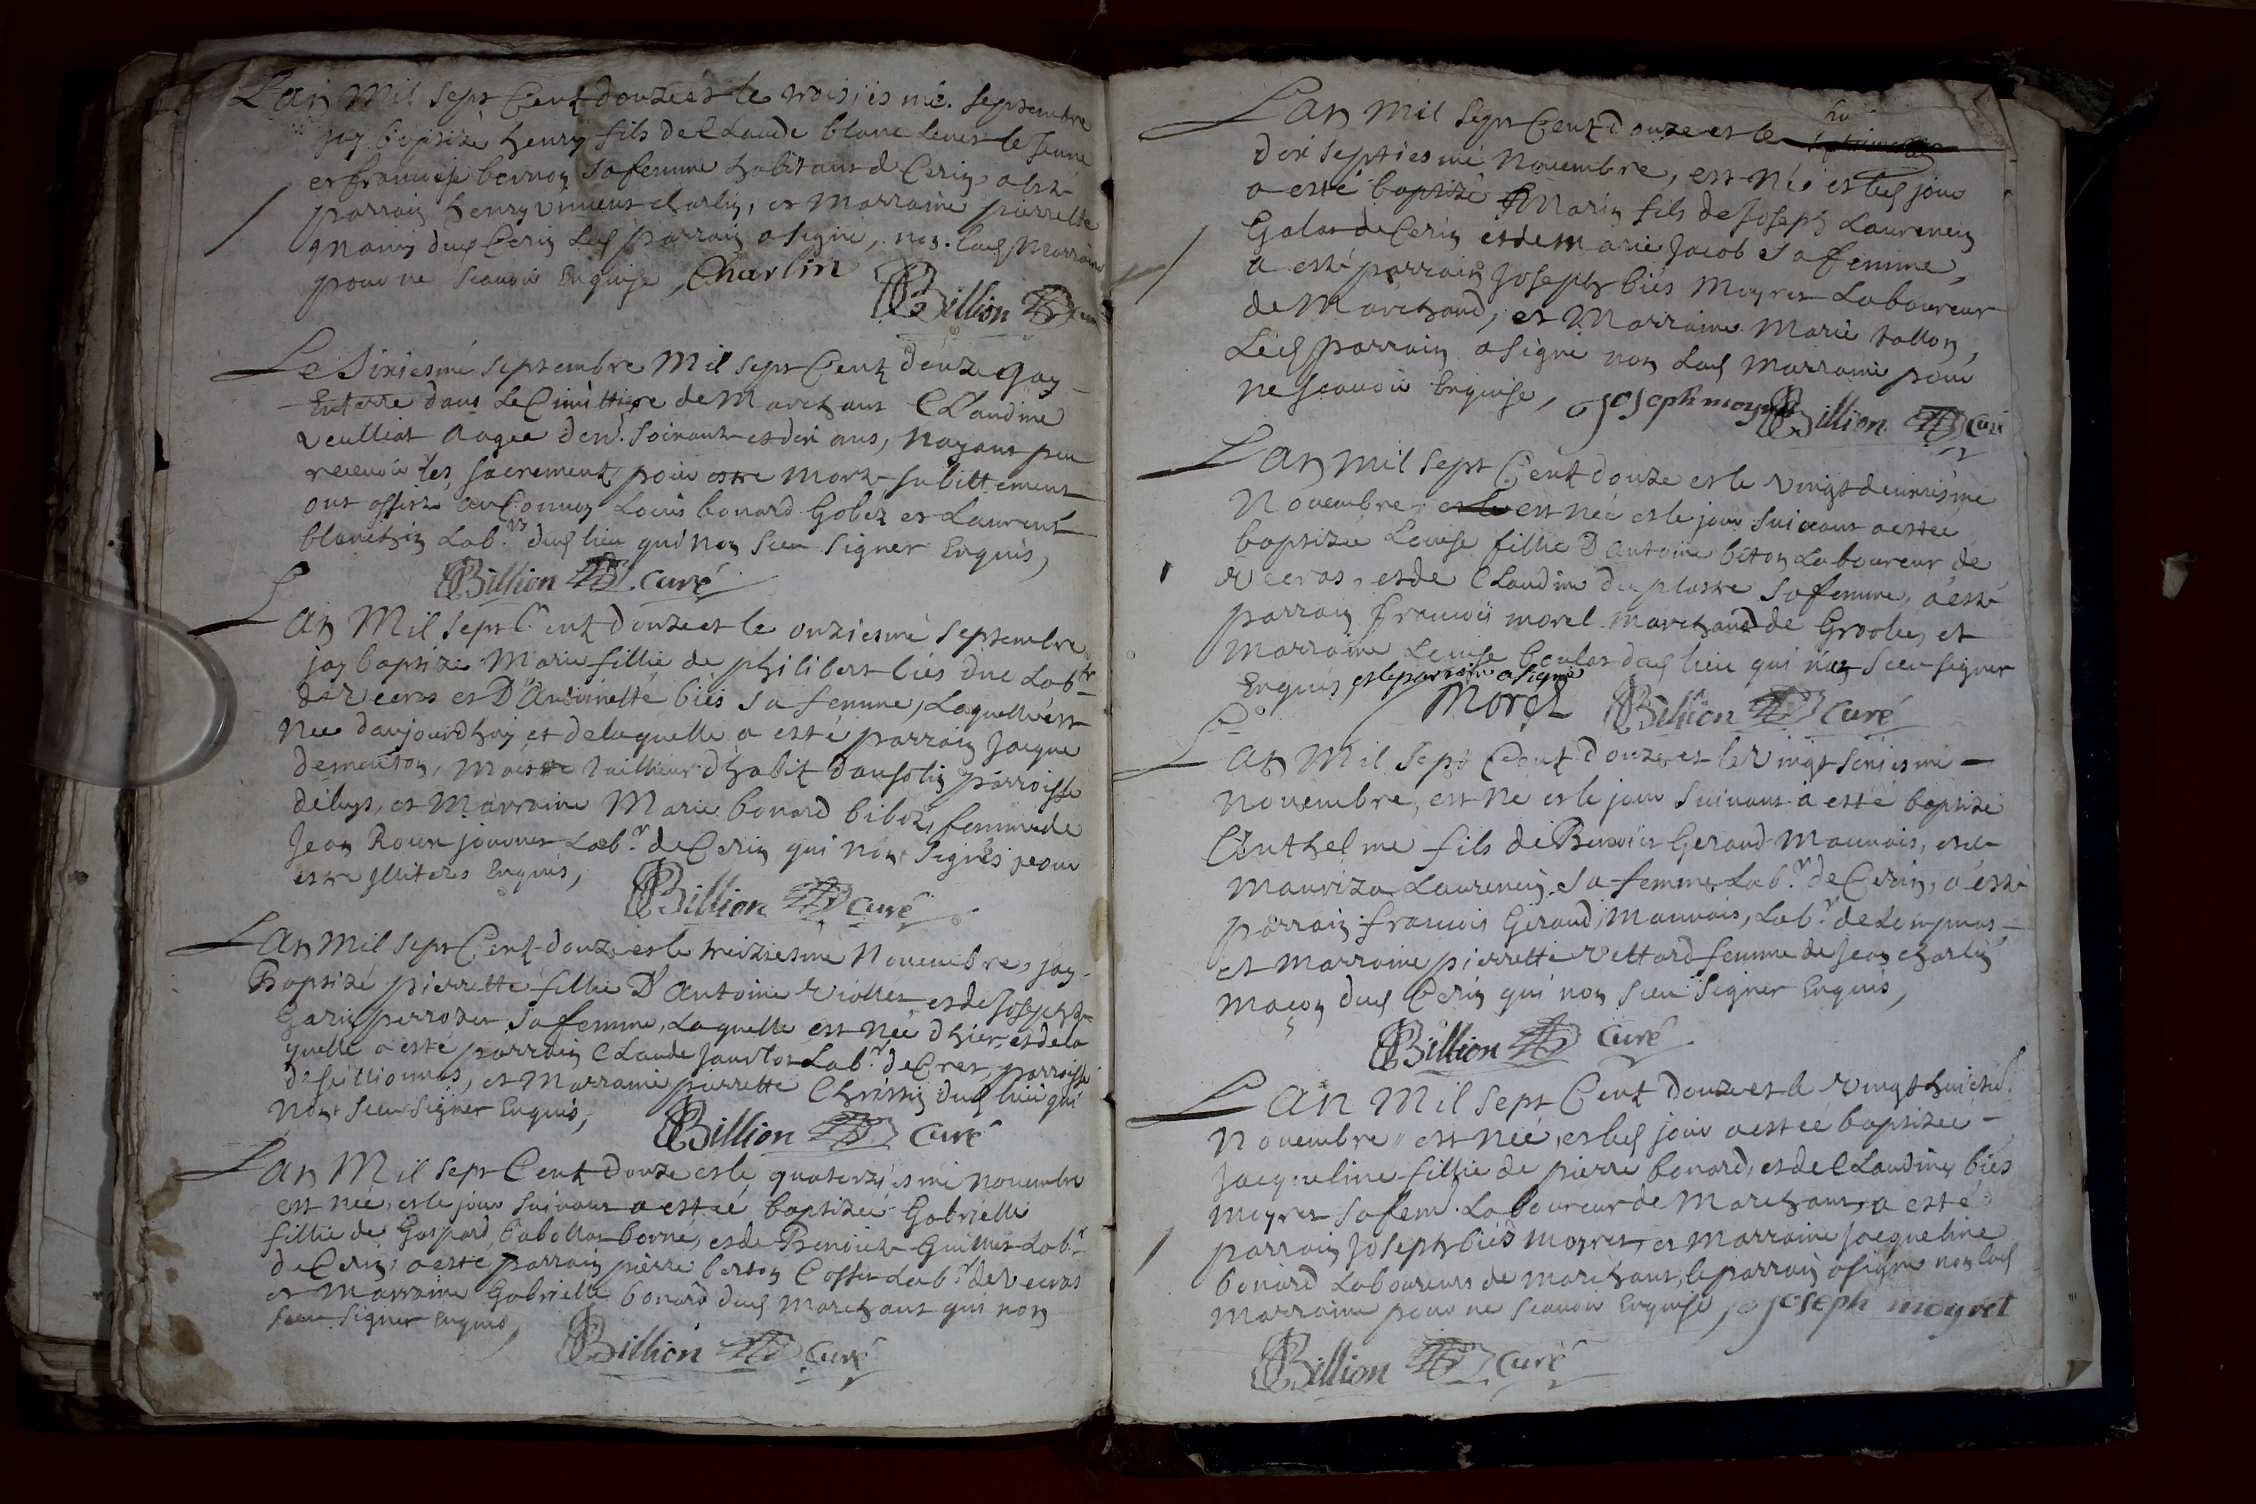 L'an Mil sept Cent douze et le troisiesme. septembre
jay baptizé henry fils de Claude blanc le Jeune
et francoise bernon sa femme habitans de Cerin a esté
parrain henry charlin, et Marraine pierrette
dud Cerin Led parrain a signé, non. lad Marraine
pour ne scavoir Enquise, Charlin
Billion Curé
Le Sixiesme septembre Mil sept Cent douze jay
Enterré dans Le Cimittiere de Marchant Claudine
veulliat aagee den. soixante et dix ans, nayant peu
recevoir les sacrements pour estre morte subittement
ont assisté au Convoy Louis bonard Gobéz et Laurent
blanchin Lab.rs dud lieu qui non sceu signer Enquis,
Billion curé
L'an Mil sept Cent douze et le onziesme septembre
jay baptizé Marie fillie de philibert biés duc Labr
de veeras et D'Antoinette biés sa femme, Laquelle est
Née daujourdhuy et de laquelle a esté parrain Jacque
demouton, maistre tailleur dhabit parroisse
et Marraine Marie bonard biboz, femme de
Jean Roux journet Lab.r de Cerin qui nont signés pour
estre illiteres Enquis,
Billion curé
L'an Mil sept Cent douze et le treiziesme Novembre, jay
Baptizé pierrette fillie D'antoine viollet et de Josephte
Garin perrozet sa femme, Laquelle est Née dhier, et de la
quelle a esté parrain Claude Lab.r de Cret, parroisse
de seillionnas, et Marraine pierrette dud lieu qui
nont sceu signer Enquis,
Billion curé
L'an Mil sept Cent douze et le quatorziesme Novembre
est née, et le jour suivant a estéé baptizéé Gabrielle
fillie de Gaspard babollat borné, et de Benoiste Guillet Lab.r
de Cerin a esté parrain pierre berton Coffet Lab.r de veeras
et Marraine Gabrielle bonard dud Marchant qui non
sceu signer Enquis,
Billion Curé
L'an Mil sept Cent douze et le
dix septiesme Novembre, est Né, et led jour
a esté baptizé Marin fils de Joseph Laurencin
Galat de Cerin et de Marie Jacob sa femme,
a esté parrain Joseph biés Moyret Laboureur
de Marchand, et Marraine Marie tallon,
Led parrain a signé non Lad Marraine pour
ne scavoir Enquise, Joseph moyret Billion Curé
L'an Mil sept Cent douze et le vingtdeuxiesme
Novembre, est née et le jour suivant a estée
baptizée Louise fillie D'antoine béton Laboureur de
veeras, et de Claudine duplastre sa femme, a esté
parrain francois morel marchand de Groslee, et
Marraine Louise boulat dud lieu qui non sceu signer
Enquis, et le parrain a signé
Morel Billion Curé
L'an Mil sept Cent douze et le vingt sixiesme
Novembre, est Né et le jour suivant a esté baptizé
Anthelme fils de Benoist Geraud Mauvais, et de
Mauriza Laurencin sa femme Lab.rs de Cerin, a esté
parrain francois Giraud Mauvais, Lab.r de Lompnas,
et Marraine pierrette vettard femme de Jean charlin
maçon dud Cerin qui non sceu signer Enquis,
Billion Curé
L'an Mil sept Cent douze et le vingt huict.
Novembre est Née, et led jour a estéé baptizéé
Jacqueline fillie de pierre bonard, et de Claudine biés
moyret sa fem. Laboureur de Marchant, a esté
parrain Joseph biés moyret, et Marraine Jacqueline
bonard Laboureurs de marchant, le parrain a signé non lad
marraine pour ne scavoir Enquise, Joseph moyret
Billion Curé